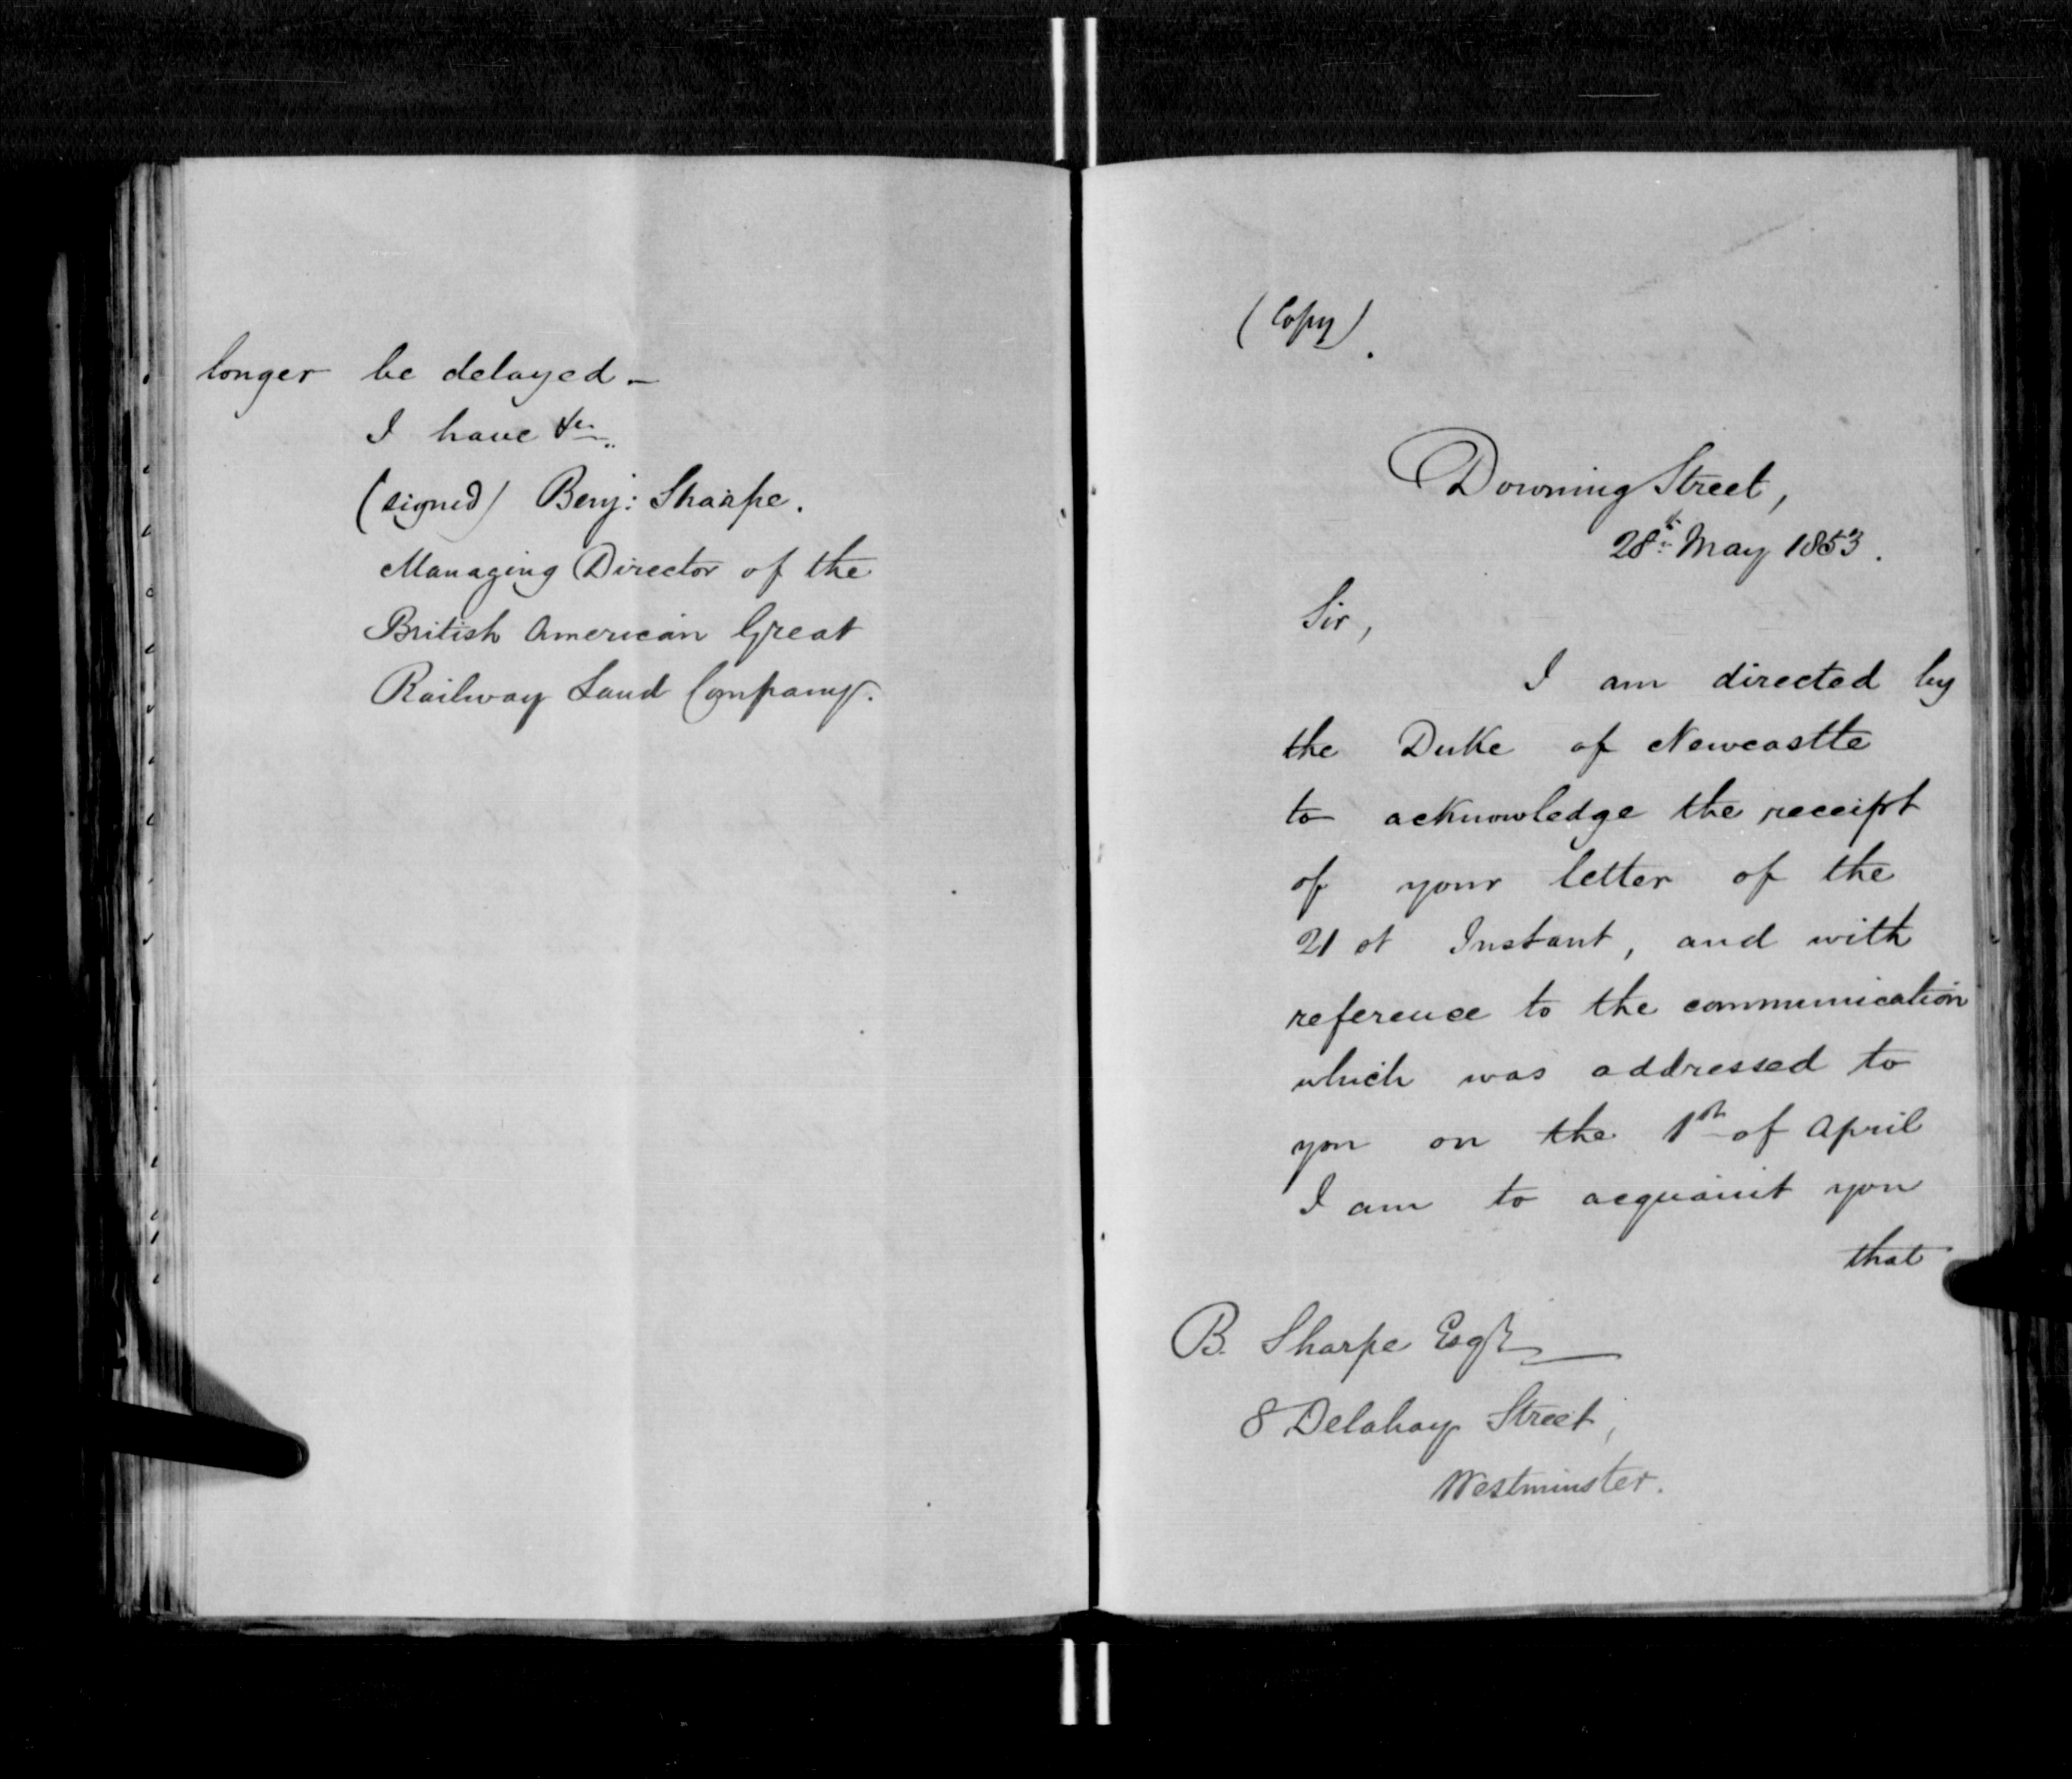 longer be delayed —
I have &c.
(signed) Benj: Sharpe.
Managing Director of the
British American Great
Railway Land Company.
(Copy).
Downing Street,
28th May 1853.
Sir,
I am directed by
the Duke of Newcastle
to acknowledge the receipt
of your letter of the
21st Instant, and with
reference to the communication
which was addressed to
you on the 1st of April
I am to acquaint you
that
B. Sharpe Esqre
8 Delahay Street,
Westminster.